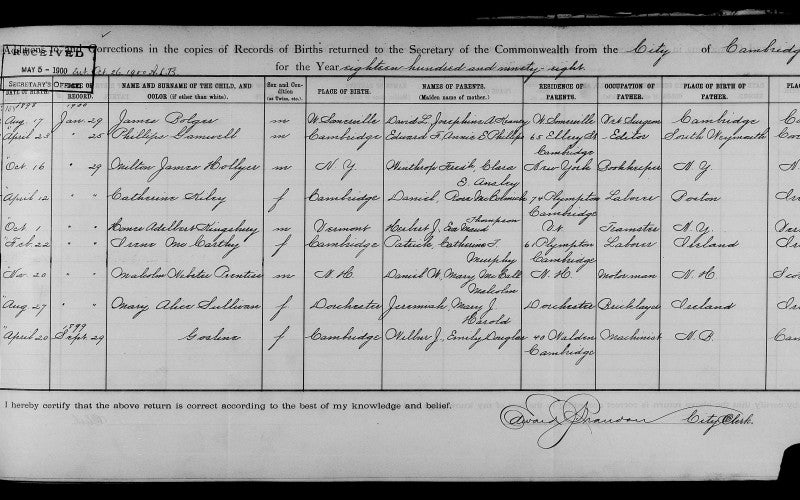 Additions to and Corrections in the copies of Records of Births returned to the Secretary of the Commonwealth from the City of Cambridg
RECEIVED
MAY 5 - 1900
Oct 26 1900
for the Year eighteen hundred and ninety-eight.
SECRETARY'S OFFICE
DATE OF BIRTH. RECORD. NAME AND SURNAME OF THE CHILD, AND COLOR (if other than white). Sex and Condition (as Twins, etc.) PLACE OF BIRTH. NAMES OF PARENTS. (Maiden name of mother.) RESIDENCE OF PARENTS. OCCUPATION OF FATHER. PLACE OF BIRTH OF FATHER. PLAC
1898 1900
Aug 17 Jan 29 James Bolger m W Somerville David L, Josephine A W Somerville Vet Surgeon Cambridge
" April 23 " 25 Phillips Gamwell m Cambridge Edward F, Annie E Phillips 65 Ellery St Cambridge Editor South Weymouth
" Oct 16 " 29 Milton James Hollyer m N. Y. Winthrop Fredk, Clara E Ansley New York Bookkeeper N. Y.
" April 12 " " Catherine Kiley f Cambridge Daniel, Rose McCormick 74 Plympton Cambridge Laborer Boston
" Oct 1 " " Homer Adelbert Kingsbury m Vermont Herbert J, Eva Maud Thompson Vt Teamster N. Y.
" Feb 22 " " Irene McCarthy f Cambridge Patrick, Catherine T. Murphy 61 Plympton Cambridge Laborer Ireland
" Nov 20 " " Malcolm Webster Prentiss m N. H. Daniel W, Mary McCall Malcolm N. H. Motorman N. H.
" Aug 27 " " Mary Alice Sullivan f Dorchester Jeremiah, Mary J. Harold Dorchester Bricklayer Ireland
1899
" April 20 Sept 29 Gosline f Cambridge Wilbur J, Emily Douglas 40 Walden Cambridge Machinist N. B.
I hereby certify that the above return is correct according to the best of my knowledge and belief.
Edward J. Brandon City Clerk.